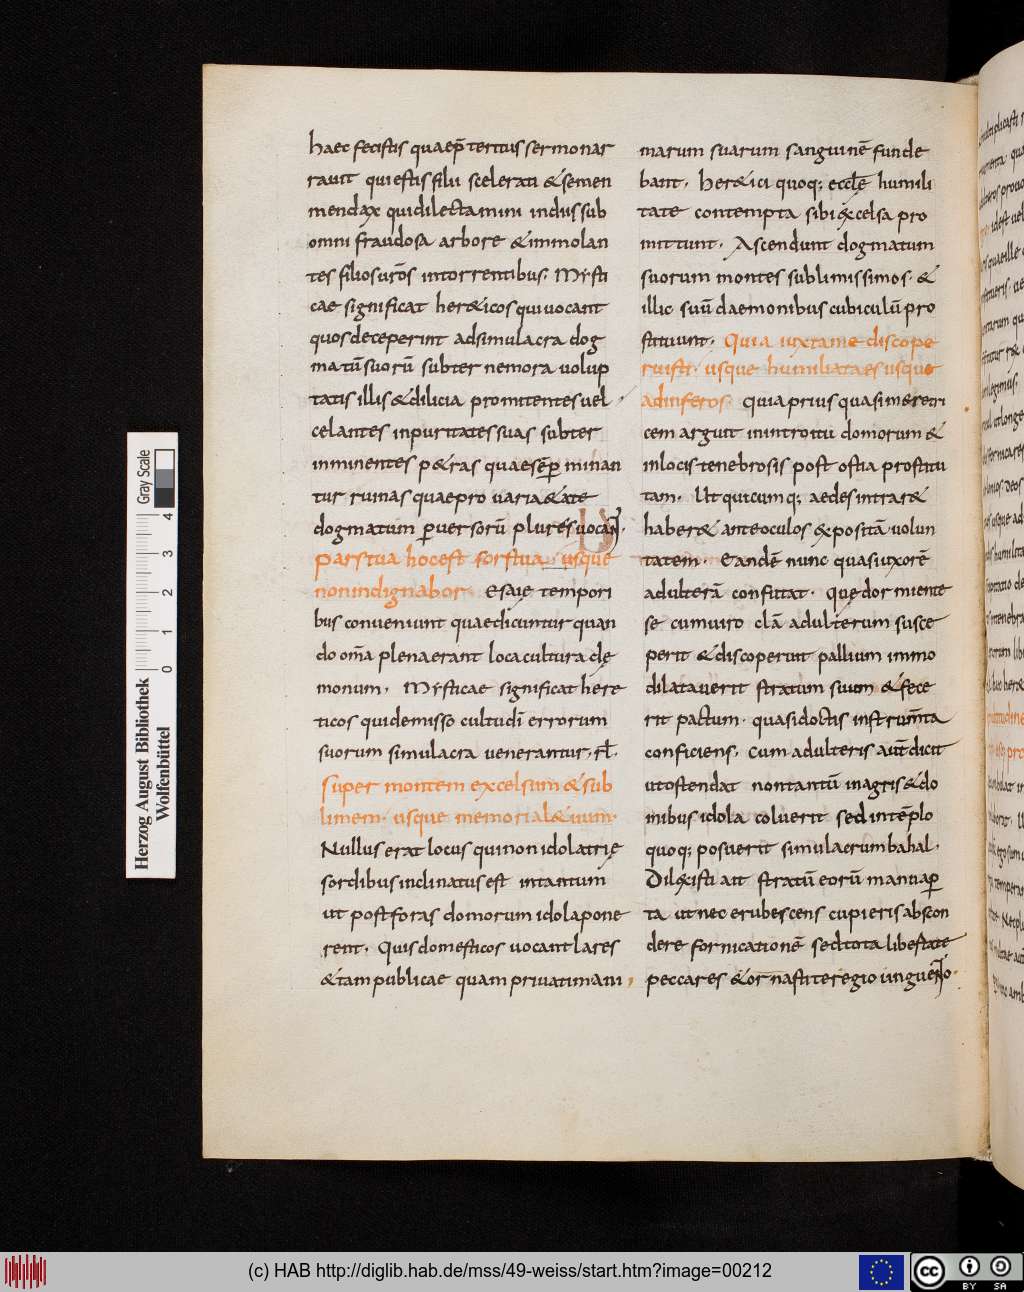 haec fecistis quaep̄ tertius sermo nar
rauit qui estis filii scelerati & semen
mendax qui dilectamini in diis sub
omni frandosa arbore & immolan
tes filios ur̄os in torrentibus. Mysti
cae significat her&icos qui uocant
quos deceperint ad simulacra dog
matū suorū subter nemora uolup
tatis illis & dilicia promitentes uel
celantes inpuritates suas subter
inminentes p&ras quae sēp minan
tur ruinas quae pro uaria&ate
dogmatum puersorū plures uocant.
Pars tua hoc est sors tua. usque
non indignabor. Esaię tempori
bus conueniunt quae dicuntur quan
do om̄a plena erant loca cultura dę
monum. Mysticae significat here
ticos qui demisso cultu dī errorum
suorum simulacra uenerantur, rł.
Super montem excelsum & sub
limem. usque memorial& uum.
Nullus erat locus qui non idolatrię
sordibus inclinatus est in tantum
ut post foras domorum idola pone
rent. Quis domesticos uocant lares
& tam publicae quam priuatim ani
marum suarum sanguinē funde
bant. her&ici quoq; eccłe humili
tate contempta sibi excelsa pro
mittunt. Ascendunt dogmatum
suorum montes sublimissimos. &
illic suū daemonibus cubiculū pro
stituunt. Quia iuxta me discope
ruisti. usque humiliata es usque
ad inferos. quia prius quasi meretri
cem arguit in introitu domorum &
in locis tenebrosis post ostia prostitu
tam. Ut quicumq; aedes intrar&
haber& ante oculos expositā uolun
tatem. Eandē nunc quasi uxorē
adulterā confutat. quę dormiente
se cum uiro clā adulterum susce
perit & discoperuit pallium immo
dilatauerit stratum suum & fece
rit pactum. quasi doctis instrum̄ta
conficiens. cum adulteris aut̄ dicit
ut ostendat non tantū in agris & do
mibus idola coluerit sed in tēplo
quoq; posuerit simulacrum bahal.
Dilexisti ait stratū eorū manu ap
ta ut nec erubescens cupieris abscon
dere fornicationē sed tota libertate
peccares & ornasti te regio unguento.
Herzog August Bibliothek
Wolfenbüttel
Gray Scale
0 1 2 3 4
(c) HAB http://diglib.hab.de/mss/49-weiss/start.htm?image=00212
cc
BY SA